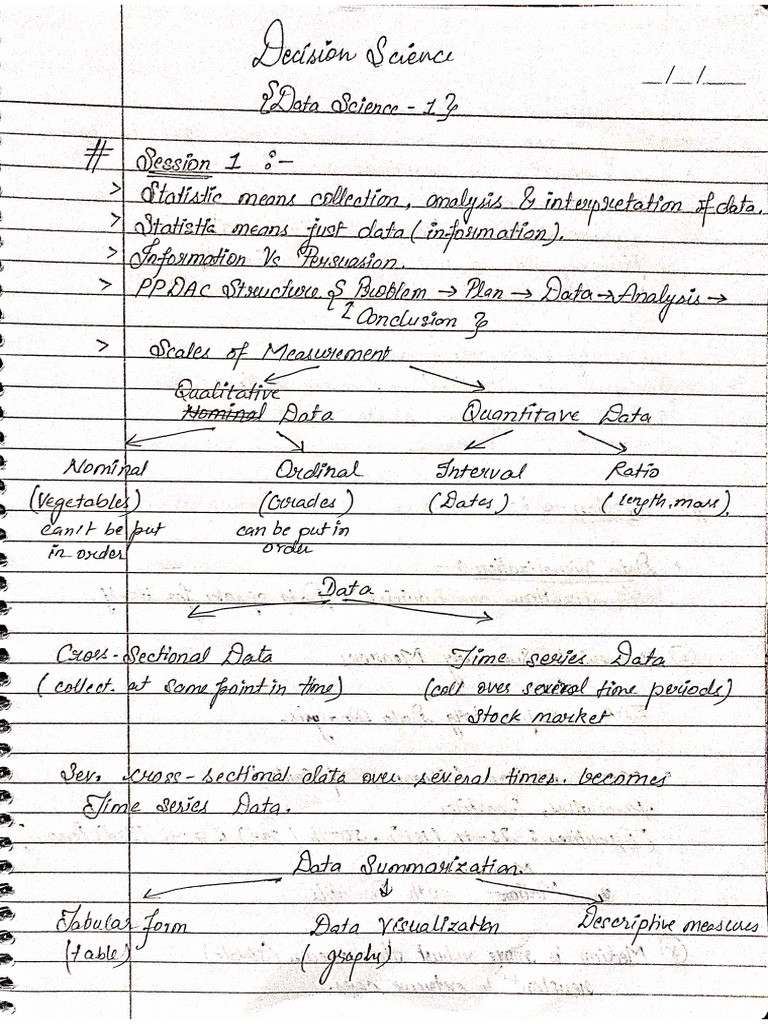 Decision Science
_/_/___
{Data Science - 1}
# Session 1 :-
> Statistic means collection, analysis & interpretation of data.
> Statistic means just data (information).
> Information Vs Persuasion.
> PPDAC Structure { Problem → Plan → Data → Analysis →
Conclusion }
> Scales of Measurement
Qualitative
Nominal Data Quantitave Data
Nominal Ordinal Interval Ratio
(Vegetables) (Grades) (Dates) (length, mass)
can't be put can be put in
in order order
Data
Cross-Sectional Data Time series Data
(collect. at same point in time) (coll over several time periods)
Stock market
Sev. cross-sectional data over several times. becomes
Time series Data.
Data Summarization.
Tabular form Data Visualization Descriptive measures
(table) (graphs)